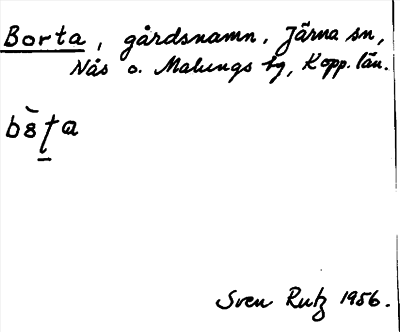 Borta, gårdsnamn. Järna sn,
Nås o. Malungs tg, Kopp. län.
Sven Rutz 1956.